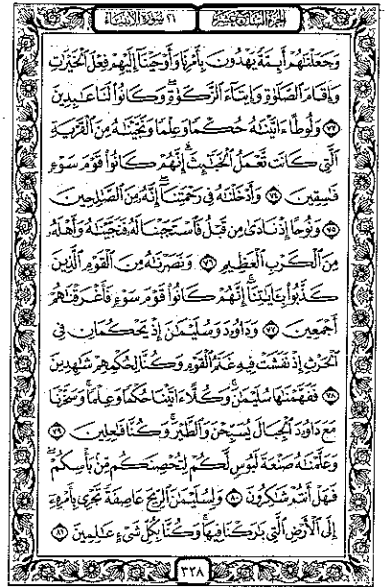 الجزء السابع عشر ٢١ سورة الأنبياء
وَجَعَلْنَٰهُمْ أَئِمَّةً يَهْدُونَ بِأَمْرِنَا وَأَوْحَيْنَآ إِلَيْهِمْ فِعْلَ ٱلْخَيْرَٰتِ
وَإِقَامَ ٱلصَّلَوٰةِ وَإِيتَآءَ ٱلزَّكَوٰةِ وَكَانُوا۟ لَنَا عَٰبِدِينَ
٧٣ وَلُوطًا ءَاتَيْنَٰهُ حُكْمًا وَعِلْمًا وَنَجَّيْنَٰهُ مِنَ ٱلْقَرْيَةِ
ٱلَّتِى كَانَت تَّعْمَلُ ٱلْخَبَٰٓئِثَ إِنَّهُمْ كَانُوا۟ قَوْمَ سَوْءٍ
فَٰسِقِينَ ٧٤ وَأَدْخَلْنَٰهُ فِى رَحْمَتِنَآ إِنَّهُۥ مِنَ ٱلصَّٰلِحِينَ
٧٥ وَنُوحًا إِذْ نَادَىٰ مِن قَبْلُ فَٱسْتَجَبْنَا لَهُۥ فَنَجَّيْنَٰهُ وَأَهْلَهُۥ
مِنَ ٱلْكَرْبِ ٱلْعَظِيمِ ٧٦ وَنَصَرْنَٰهُ مِنَ ٱلْقَوْمِ ٱلَّذِينَ
كَذَّبُوا۟ بِـَٔايَٰتِنَآ إِنَّهُمْ كَانُوا۟ قَوْمَ سَوْءٍ فَأَغْرَقْنَٰهُمْ
أَجْمَعِينَ ٧٧ وَدَاوُۥدَ وَسُلَيْمَٰنَ إِذْ يَحْكُمَانِ فِى
ٱلْحَرْثِ إِذْ نَفَشَتْ فِيهِ غَنَمُ ٱلْقَوْمِ وَكُنَّا لِحُكْمِهِمْ شَٰهِدِينَ
٧٨ فَفَهَّمْنَٰهَا سُلَيْمَٰنَ وَكُلًّا ءَاتَيْنَا حُكْمًا وَعِلْمًا وَسَخَّرْنَا
مَعَ دَاوُۥدَ ٱلْجِبَالَ يُسَبِّحْنَ وَٱلطَّيْرَ وَكُنَّا فَٰعِلِينَ ٧٩
وَعَلَّمْنَٰهُ صَنْعَةَ لَبُوسٍ لَّكُمْ لِتُحْصِنَكُم مِّنۢ بَأْسِكُمْ
فَهَلْ أَنتُمْ شَٰكِرُونَ ٨٠ وَلِسُلَيْمَٰنَ ٱلرِّيحَ عَاصِفَةً تَجْرِى بِأَمْرِهِۦٓ
إِلَى ٱلْأَرْضِ ٱلَّتِى بَٰرَكْنَا فِيهَا وَكُنَّا بِكُلِّ شَىْءٍ عَٰلِمِينَ ٨١
٣٢٨